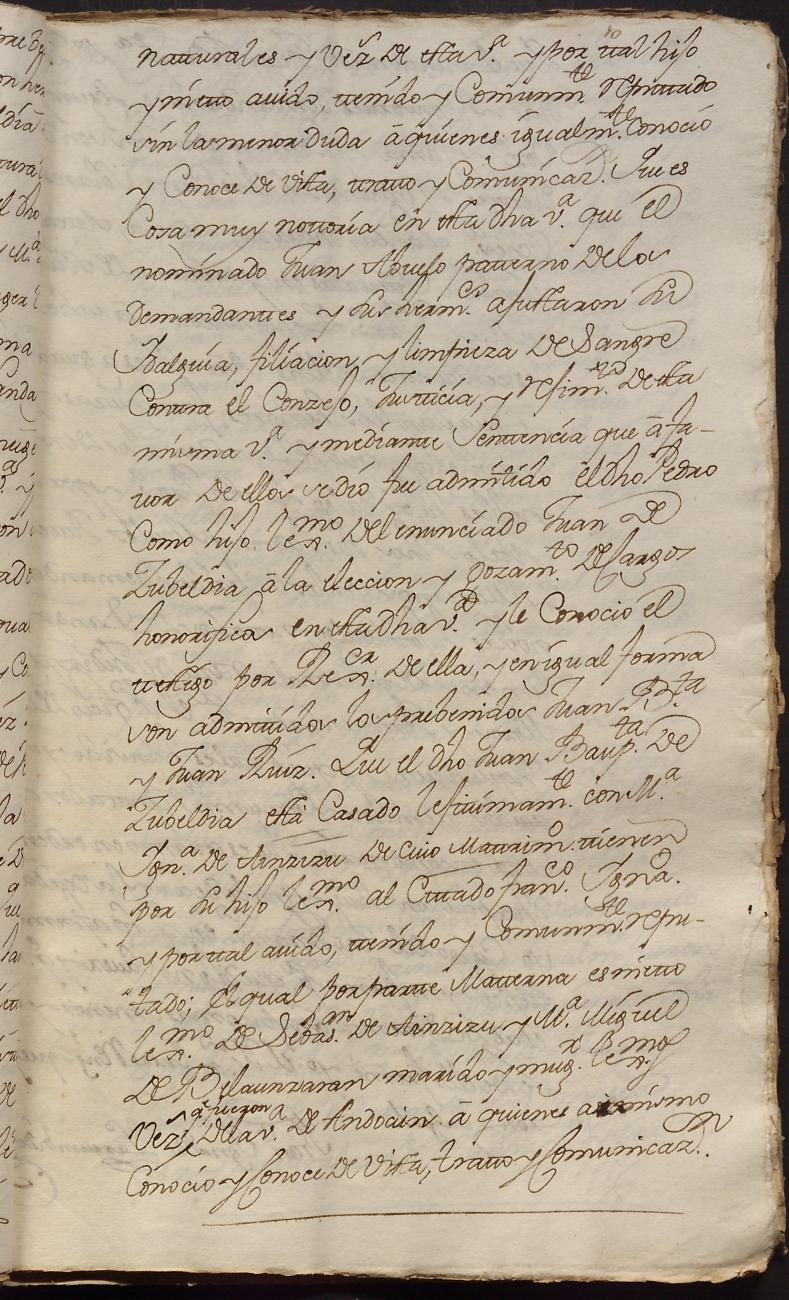 naturales y Vez.s de esta v.a y por tal hijo
y nieto auido, tenido y Comunm.te reputado
sin la menor duda â quienes igualm.te Conoció
y Conoce de vista, trato y Comunicaz.n Que es
Cosa muy notoria en esta dha v.a que el
nominado Juan Abuelo paterno de los
Demandantes y sus herm.os ajustaron su
Ydalguia, filiacion, y limpieza de Sangre
Contra el Conzejo, Justicia, y rejim.to de esta
misma v.a y mediante Sentencia que â fa-
uor de ellos se dió fue admitido el dho Pedro
Como hijo lex.mo del enunciado Juan de
Zubeldia â la eleccion y gozam.to de Cargos
honorificos en esta dha v.a y le Conocio el
testigo por Rex.or de ella, y en igual forma
son admitidos los prebenidos Juan B.ta
y Juan Ruiz. Que el dho Juan Baup.ta de
Zubeldia està Casado lejitimam.te con M.a
Ygn.a de Ainzizu de Cuio Matrim.o tienen
por su hijo lex.mo al Citado Fran.co Ygn.o
y por tal auido, tenido y Comunm.te repu-
tado; el qual por parte Materna es nieto
lex.mo de Sebas.an de Ainzizu y M.a Miguel
de Belaunzaran marido y mug.r lex.mos
q.e fueron
Vez.s de la v.a de Andoain â quienes asimismo
Conocio y Conoce de vista, trato y Comunicaz.n